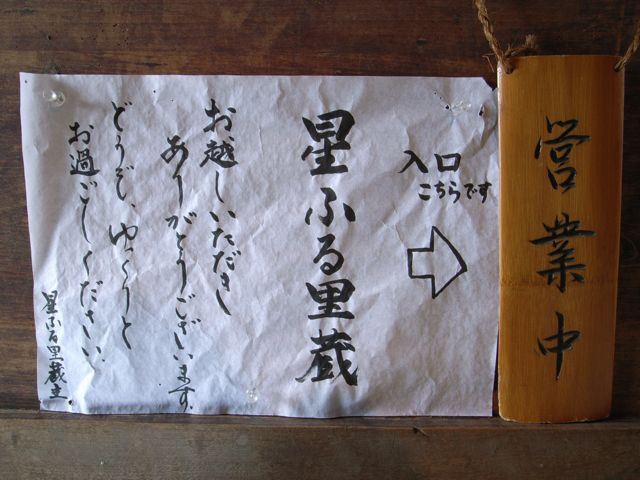 営業中
入口
こちらです
星ふる里蔵
お越しいただき
ありがとうございます。
どうぞ、ゆっくりと
お過ごしください。
星ふる里蔵主